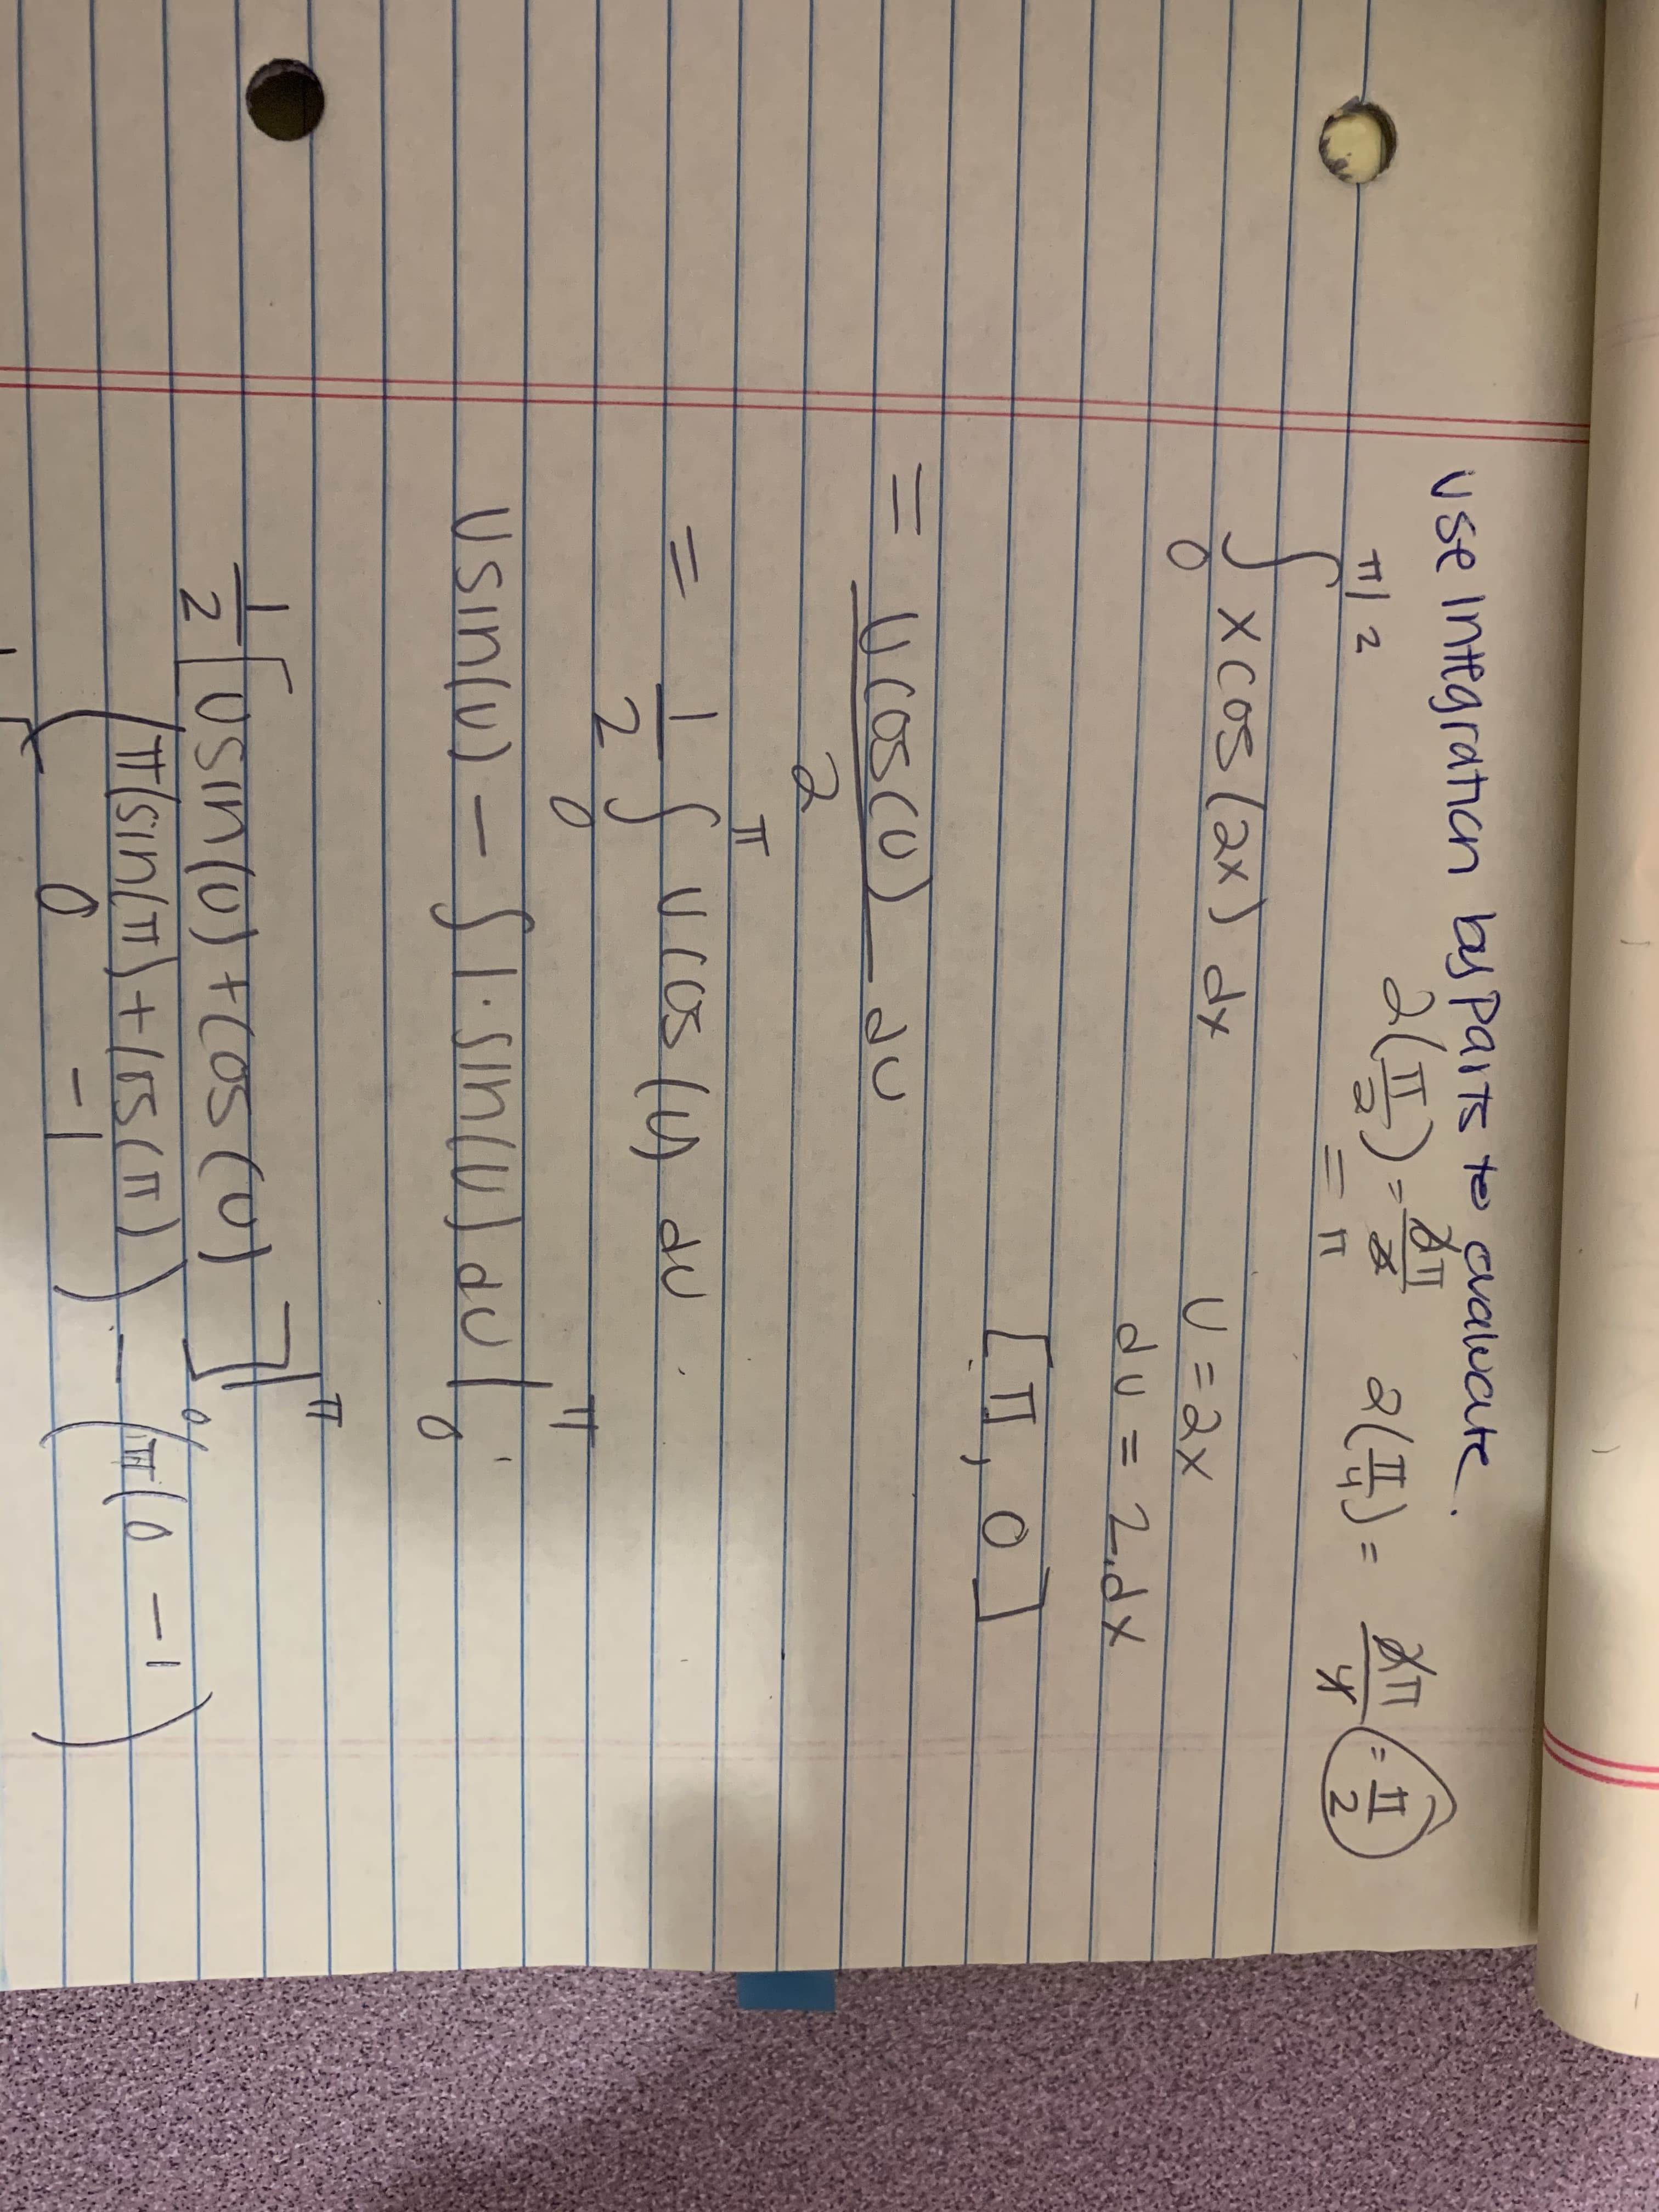 Use Integration by Parts to evaluate.
2(π/2) = 2π/2 = π   2(π/4) = 2π/4 = π/2
∫₀^{π/2} x cos(2x) dx   u = 2x
du = 2.dx
[π, 0]
= u cos(u)/2 du
= 1/2 ∫₀^π u cos(u) du.
u sin(u) - ∫ 1·sin(u) du |₀^π
1/2 [u sin(u) + cos(u)]|₀^π
(π(sin(π) + cos(π)) - (π(0 - 1)
0 - 1